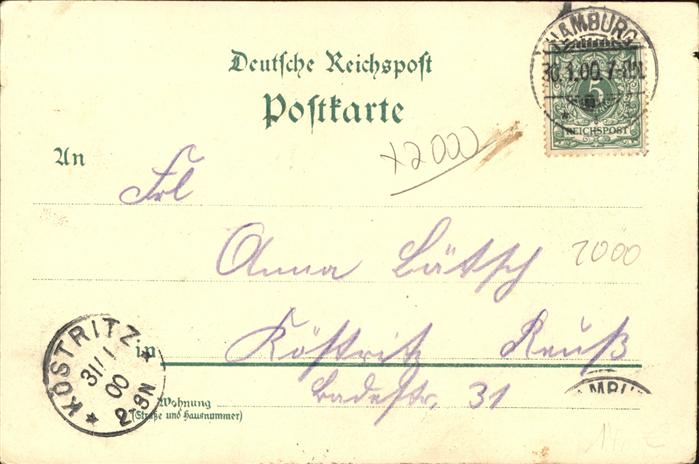 HAMBURG
30.1.00.7-8N.
5
REICHSPOST
Deutsche Reichspost
Postkarte
x2000
An
Frl
Anna Bätsch
2000
in Köstritz Reuß
KÖSTRITZ
31/1
00
2-3N
Wohnung
(Straße und Hausnummer)
Badestr. 31
AMBU